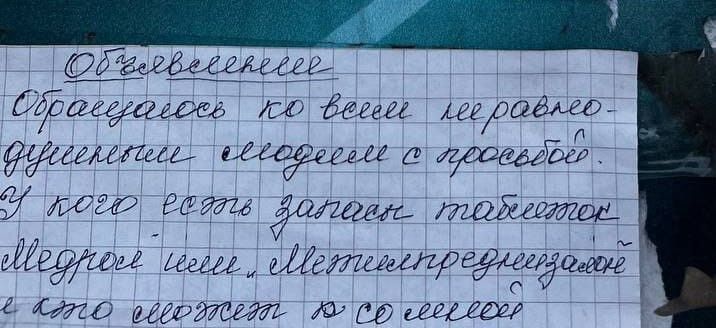 Объявление
Обращаюсь ко всем неравно-
душным людям с просьбой.
У кого есть запасы таблеток
Медрол или „Метилпреднизалон"
и кто может со мной